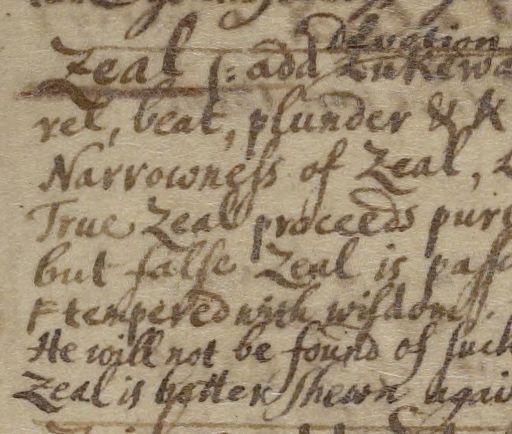 Devotion
Zeal s: add Lukewa
rel, beat, plunder & K
Narrowness of Zeal,
True Zeal proceeds pure
but false Zeal is passi
tempered with wisdom.
He will not be found of such
Zeal is better shewn agai